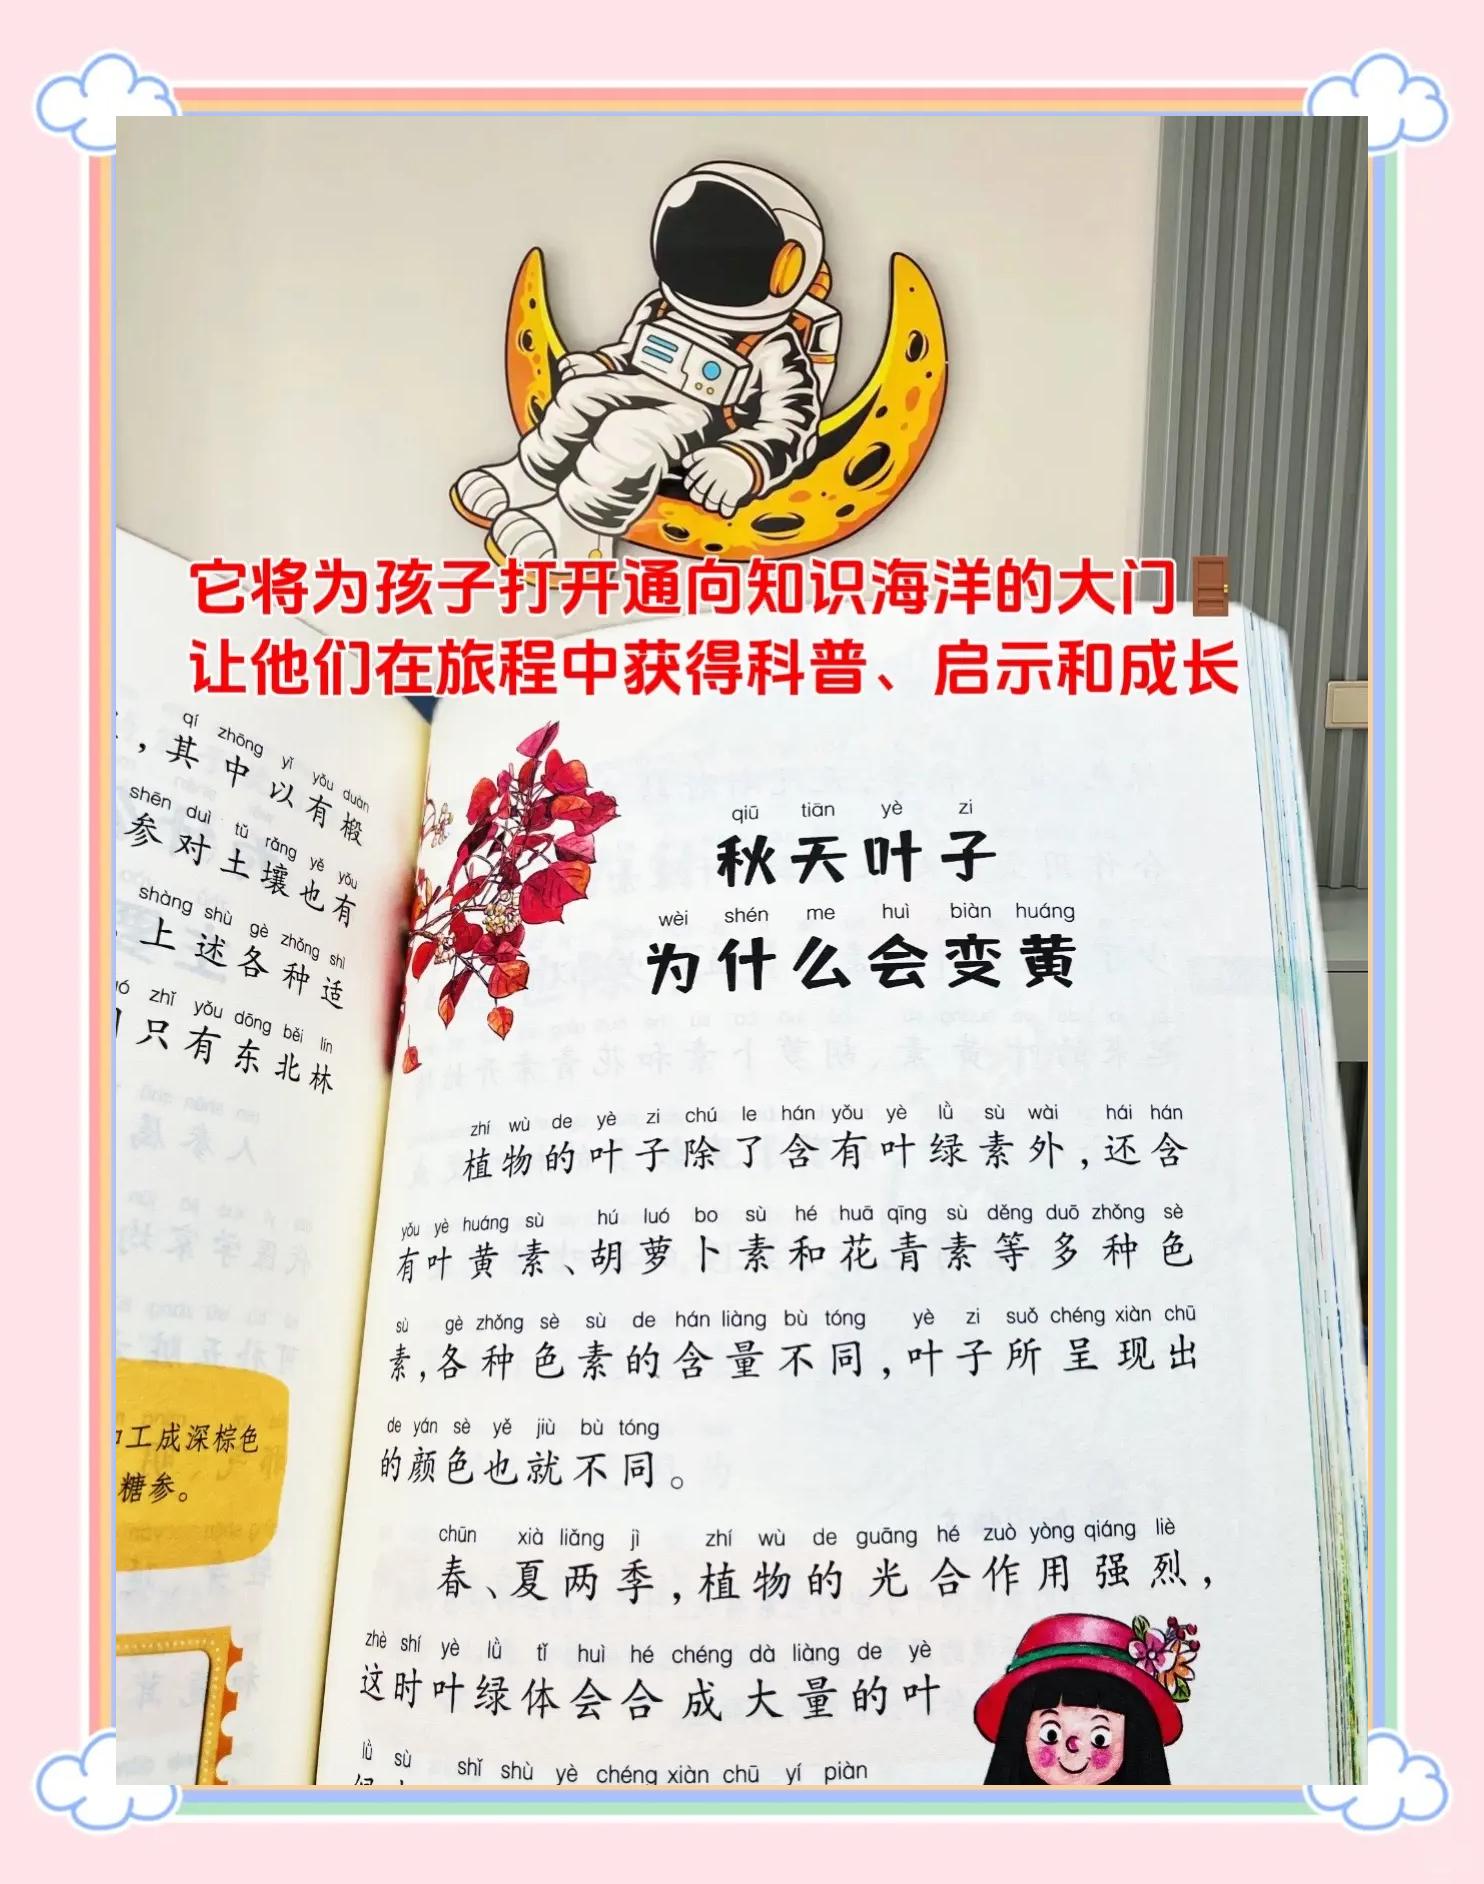 它将为孩子打开通向知识海洋的大门🚪
让他们在旅程中获得科普、启示和成长
qí zhōng yǐ yǒu duàn
，其中以有椴
shēn duì tǔ rǎng yě yǒu
参对土壤也有
shàng shù gè zhǒng shì
上述各种适
zhǐ yǒu dōng běi lín
只有东北林
工成深棕色
糖参。
qiū tiān yè zi
秋天叶子
wèi shén me huì biàn huáng
为什么会变黄
zhí wù de yè zi chú le hán yǒu yè lǜ sù wài hái hán
植物的叶子除了含有叶绿素外，还含
yǒu yè huáng sù hú luó bo sù hé huā qīng sù děng duō zhǒng sè
有叶黄素、胡萝卜素和花青素等多种色
sù gè zhǒng sè sù de hán liàng bù tóng yè zi suǒ chéng xiàn chū
素，各种色素的含量不同，叶子所呈现出
de yán sè yě jiù bù tóng
的颜色也就不同。
chūn xià liǎng jì zhí wù de guāng hé zuò yòng qiáng liè
春、夏两季，植物的光合作用强烈，
zhè shí yè lǜ tǐ huì hé chéng dà liàng de yè
这时叶绿体会合成大量的叶
lǜ sù shǐ shù yè chéng xiàn chū yí piàn